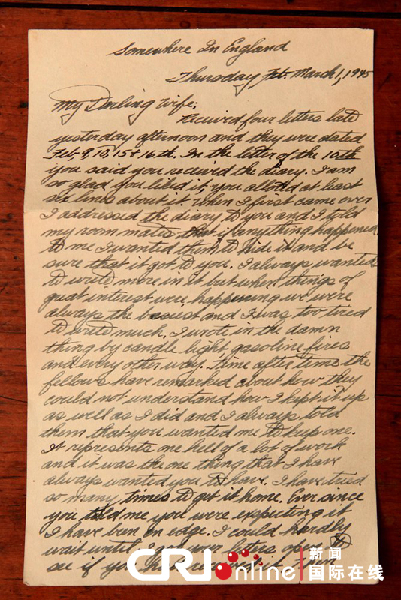 Somewhere In England
Thursday March 1, 1945
My Darling Wife;
Received four letters late
yesterday afternoon and they were dated
Feb. 9, 10, 15 & 16th. In the letter of the 10th
you said you received the diary. I am
so glad you liked it you at least
six lines about it. When I first came over
I addressed the diary to you and I told
my room mates that if anything happened
to me I wanted them to hide it and be
sure that it got to you. I always wanted
to write more in it but when things of
great interest were happening we were
always the busiest and I was too tired
to write much. I wrote in the damn
thing by candle light, gasoline fires
and every other way. Time after time the
fellows have remarked about how they
could not understand how I kept it up
as well as I did and I always told
them that you wanted me to keep one.
It represents one hell of a lot of work
and it was the one thing that I have
always wanted you to have. I have tried
so many times to get it home. Ever since
you told me you were expecting it
I have been on edge. I could hardly
wait until
see if you had received it.
CRI online 新闻
国际在线